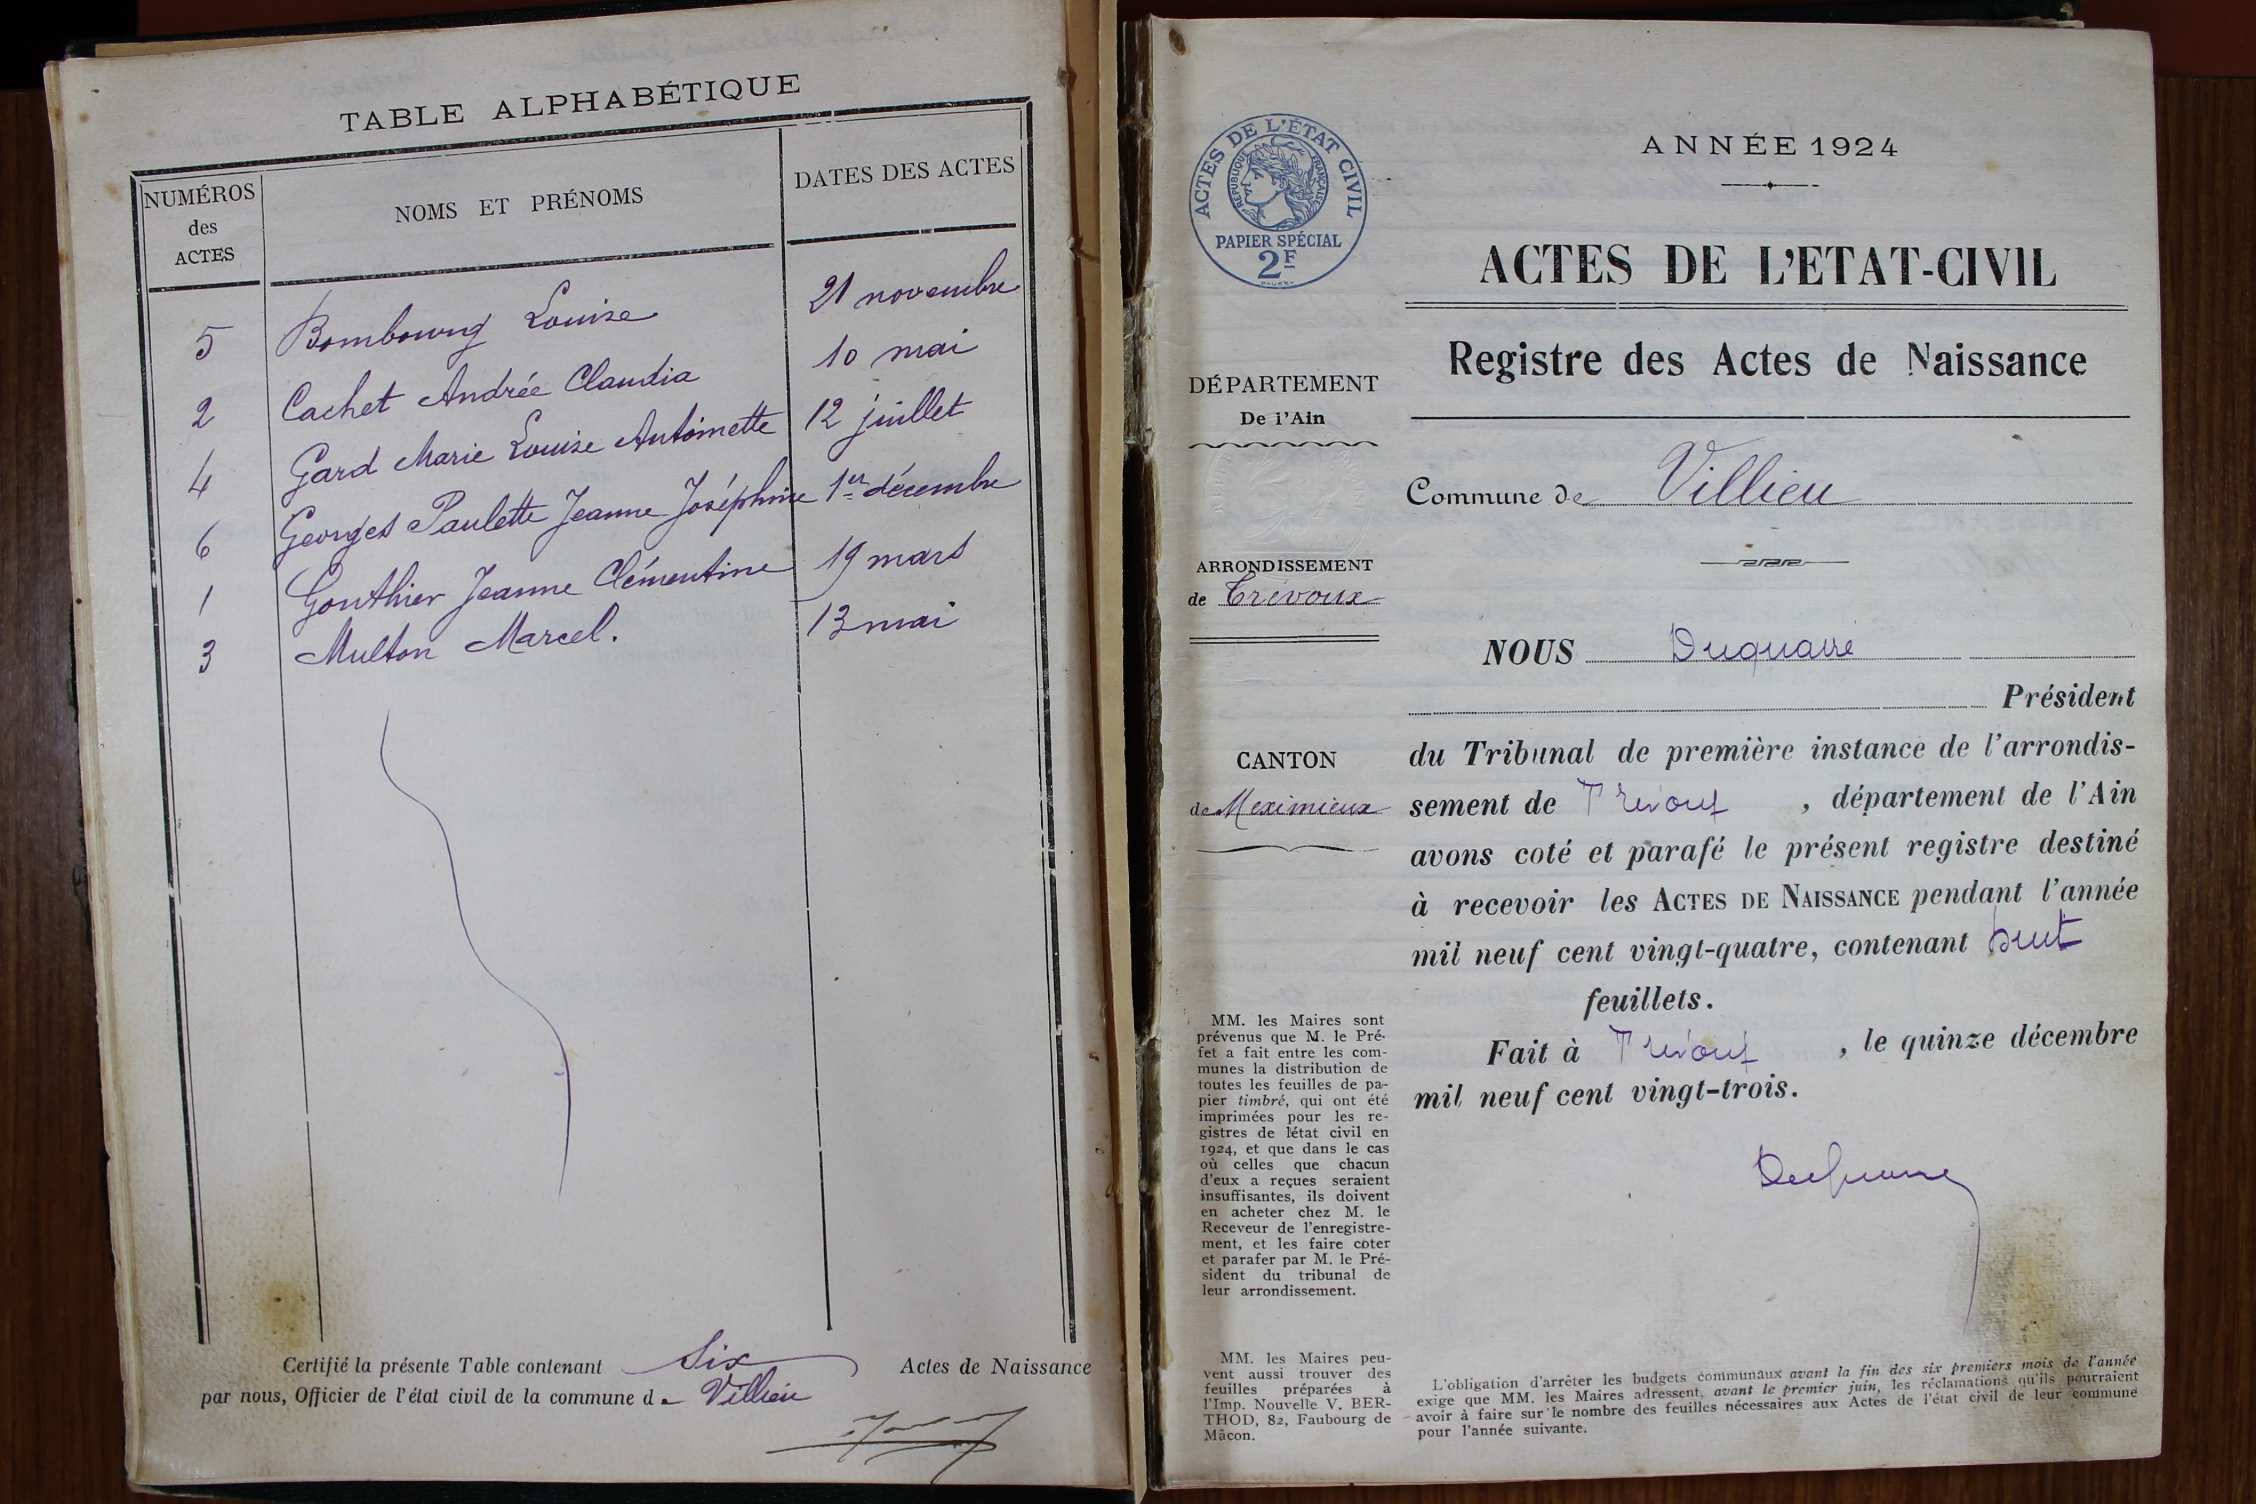 TABLE ALPHABÉTIQUE
NUMÉROS des ACTES NOMS ET PRÉNOMS DATES DES ACTES
5 Bombourg Louise 21 novembre
2 Cachet Andrée Claudia 10 mai
4 Gard Marie Louise Antoinette 12 juillet
6 Georges Paulette Jeanne Joséphine 1er décembre
1 Gonthier Jeanne Clémentine 19 mars
3 Multon Marcel. 13 mai
Certifié la présente Table contenant Six Actes de Naissance
par nous, Officier de l'état civil de la commune de Villieu
ACTES DE L'ÉTAT CIVIL
RÉPUBLIQUE FRANÇAISE
PAPIER SPÉCIAL
2F
DÉPARTEMENT
De l'Ain
ARRONDISSEMENT
de Trévoux
CANTON
de Meximieux
MM. les Maires sont
prévenus que M. le Pré-
fet a fait entre les com-
munes la distribution de
toutes les feuilles de pa-
pier timbré, qui ont été
imprimées pour les re-
gistres de l'état civil en
1924, et que dans le cas
où celles que chacun
d'eux a reçues seraient
insuffisantes, ils doivent
en acheter chez M. le
Receveur de l'enregistre-
ment, et les faire coter
et parafer par M. le Pré-
sident du tribunal de
leur arrondissement.
MM. les Maires peu-
vent aussi trouver des
feuilles préparées à
l'Imp. Nouvelle V. BER-
THOD, 82, Faubourg de
Mâcon.
ANNÉE 1924
ACTES DE L'ETAT-CIVIL
Registre des Actes de Naissance
Commune de Villieu
NOUS Duquaire
Président
du Tribunal de première instance de l'arrondis-
sement de Trévoux, département de l'Ain
avons coté et parafé le présent registre destiné
à recevoir les ACTES DE NAISSANCE pendant l'année
mil neuf cent vingt-quatre, contenant huit
feuillets.
Fait à Trévoux, le quinze décembre
mil neuf cent vingt-trois.
Duquaire
L'obligation d'arrêter les budgets communaux avant la fin des six premiers mois de l'année
exige que MM. les Maires adressent, avant le premier juin, les réclamations qu'ils pourraient
avoir à faire sur le nombre des feuilles nécessaires aux Actes de l'état civil de leur commune
pour l'année suivante.